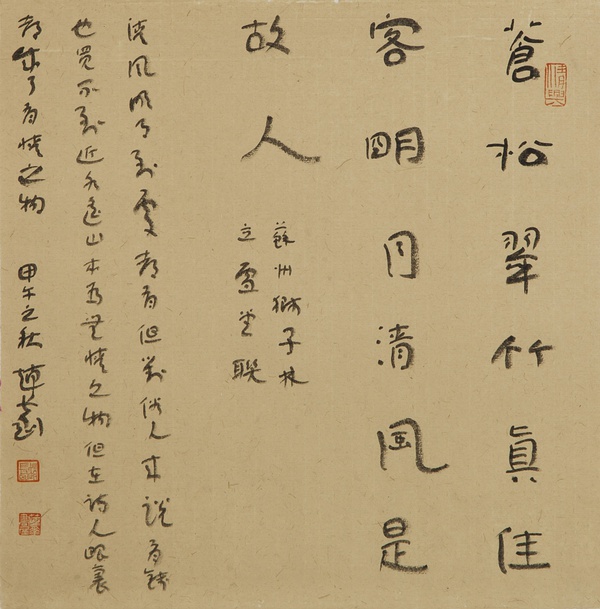 蒼松翠竹眞佳
客明月清風是
故人
蘇州獅子林
立雪堂聯
清風明月到處都有但對俗人來說有錢
也買不到近水遠山本為無情之物但在詩人眼裏
都成了有情之物 甲午之秋 趙